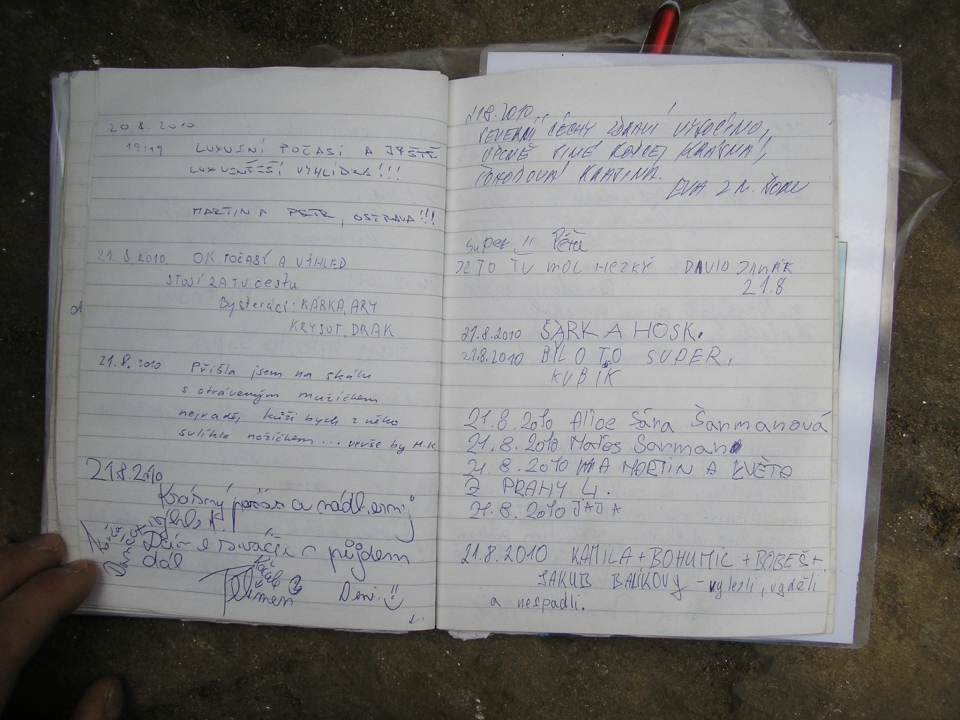 20.8.2010
19:19 LUXUSNÍ POČASÍ A JEŠTĚ
LUXUSNĚŠÍ VÝHLÍDKA!!!
MARTIN A PETR, OSTRAVA!!!
21.8.2010. OK POČASÍ A VÝHLED
STOJÍ ZA TU cestu
Bysteráci: KÁRKA, ARY
KRYSOT, DRAK
21.8.2010 Přišla jsem na skálu
s otráveným mužíčkem
nejraděj kůži bych z něho
sulíkla nožíčkem... verše by M.K
21.8.2010
Krásný počas a nádherný
výhled
půjdem
dál
Deni!!
21.8.2010
SEVERNÍ ČECHY ZDRAVÍ VYSOČINO,
ÚPLNĚ JINÉ KRAJINA,
POHODOVÁ KRAJINA.
EVA Z N.
Super!! Péťa
JE TO TU MOC HEZKÝ DAVID JANÁK
21.8
21.8.2010 ŠÁRKA HOSK.
21.8.2010 BYLO TO SUPER,
KUBÍK
21.8.2010 Alice Sára Šarmanová
21.8.2010 Matos Sarman
21.8.2010 MARTIN A KVĚTA
Z PRAHY 4.
21.8.2010 JÁJA
21.8.2010 KAMILA+BOHUMIL+BOBEŠ+
JAKUB BALÍKOVY - vylezli, viděli
a nespadli.